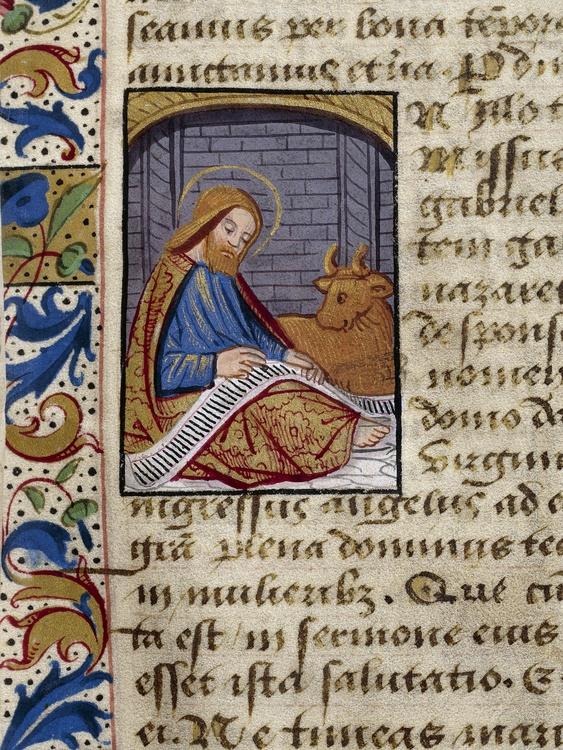 seamus per bona tēpor
N illo t
Missus
gabriel
tem ga
nazaret
desponsa
nomen
domo da
virgini
ingressus angelus ad e
grā plena dominus tec
in mulieribz. Que cu
ta est in sermone eius
esset ista salutatio. E
ei. Ne timeas mari